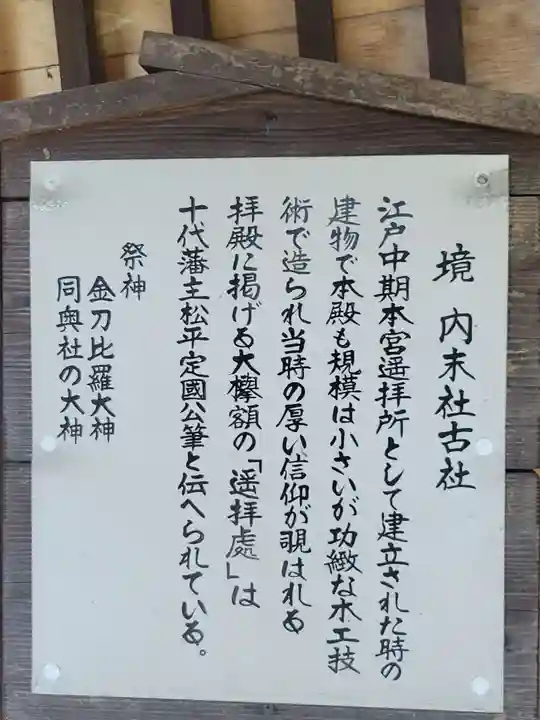 境内末社古社
江戸中期本宮遥拝所として建立された時の
建物で本殿も規模は小さいが功緻な木工技
術で造られ当時の厚い信仰が覗はれる
拝殿に掲げる大欅額の「遥拝處」は
十代藩主松平定國公筆と伝へられている。
祭神
金刀比羅大神
同輿社の大神